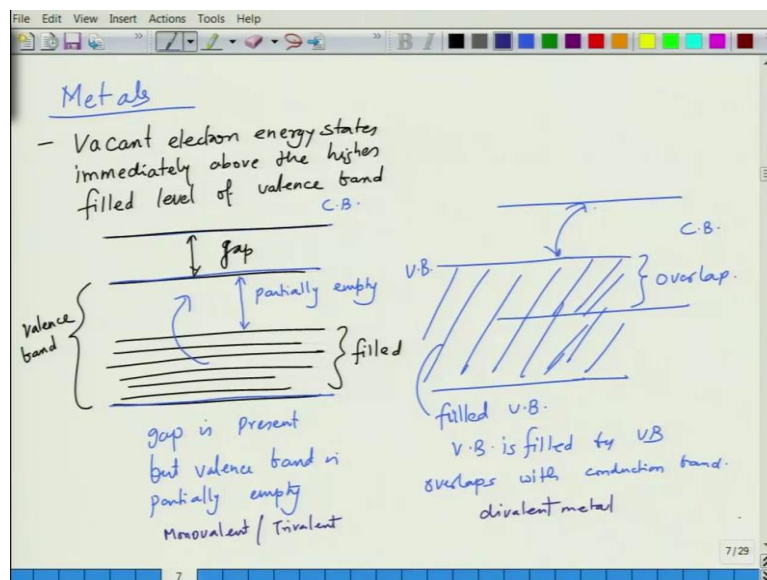 File Edit View Insert Actions Tools Help
B I
Metals
- Vacant electron energy states
immediately above the higher
filled level of valence band
C.B.
gap
partially empty
valence
band
filled
gap is present
but valence band is
partially empty
Monovalent / Trivalent
C.B.
V.B.
overlap.
filled V.B.
V.B. is filled by VB
overlaps with conduction band.
divalent metal
7/29
7